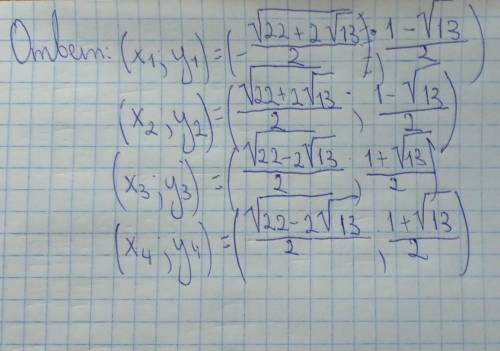 Ответ: (x₁; y₁) = (-√(22+2√13)/2; (1-√13)/2)
(x₂; y₂) = (√(22+2√13)/2; (1-√13)/2)
(x₃; y₃) = (√(22-2√13)/2; (1+√13)/2)
(x₄; y₄) = (√(22-2√13)/2; (1+√13)/2)